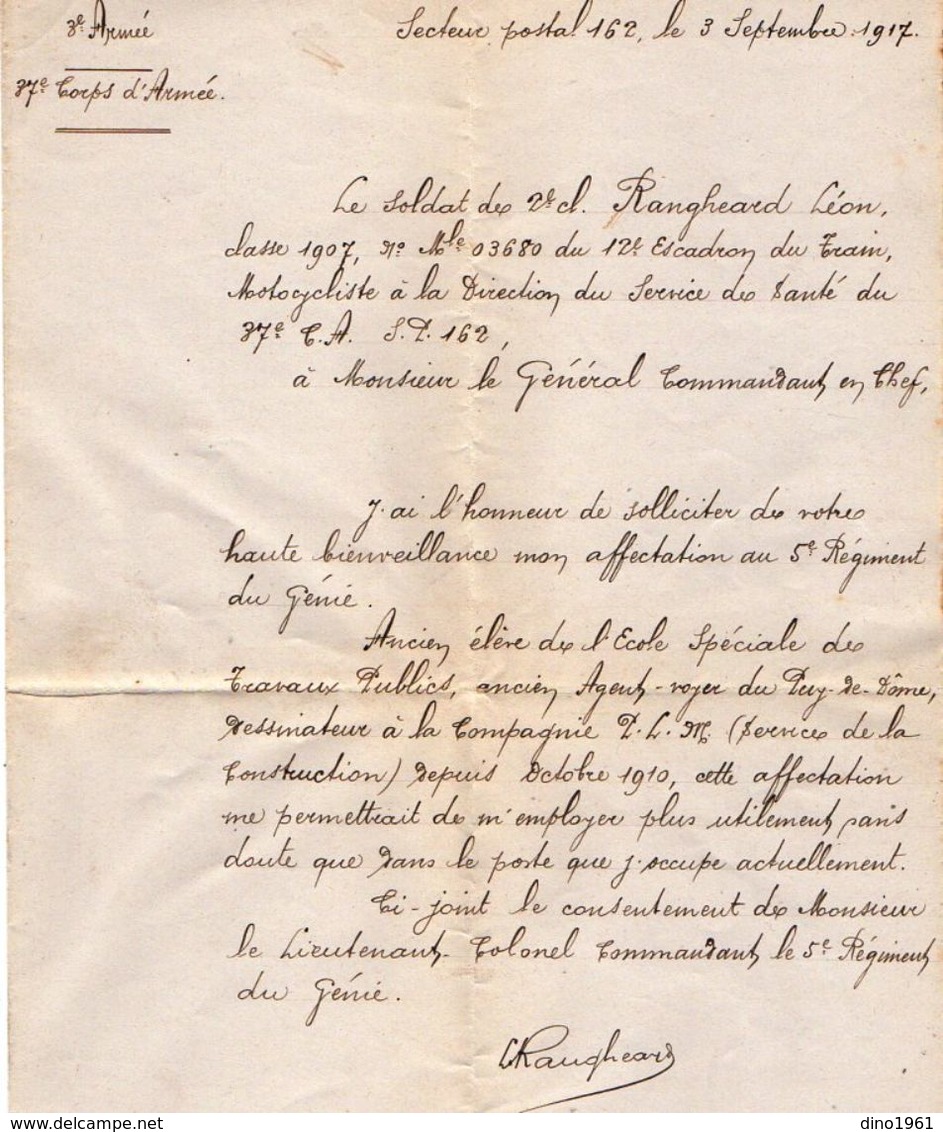 3e Armée
Secteur postal 162, le 3 Septembre 1917.
37e Corps d'Armée.
Le soldat de 2e cl. Rangheard Léon,
classe 1907, No Mle 03680 du 12e Escadron du Train,
Motocycliste à la Direction du Service de Santé du
37e C.A. S.P. 162,
à Monsieur le Général Commandant en Chef,
J'ai l'honneur de solliciter de votre
haute bienveillance mon affectation au 5e Régiment
du Génie.
Ancien élève de l'Ecole Spéciale de
Travaux Publics, ancien Agent-voyer du Puy-de-Dôme,
dessinateur à la Compagnie P.L.M. (Service de la
Construction) depuis Octobre 1910, cette affectation
me permettrait de m'employer plus utilement sans
doute que dans le poste que j'occupe actuellement.
Ci-joint le consentement de Monsieur
le Lieutenant-Colonel Commandant le 5e Régiment
du Génie.
LRangheard
dino1961